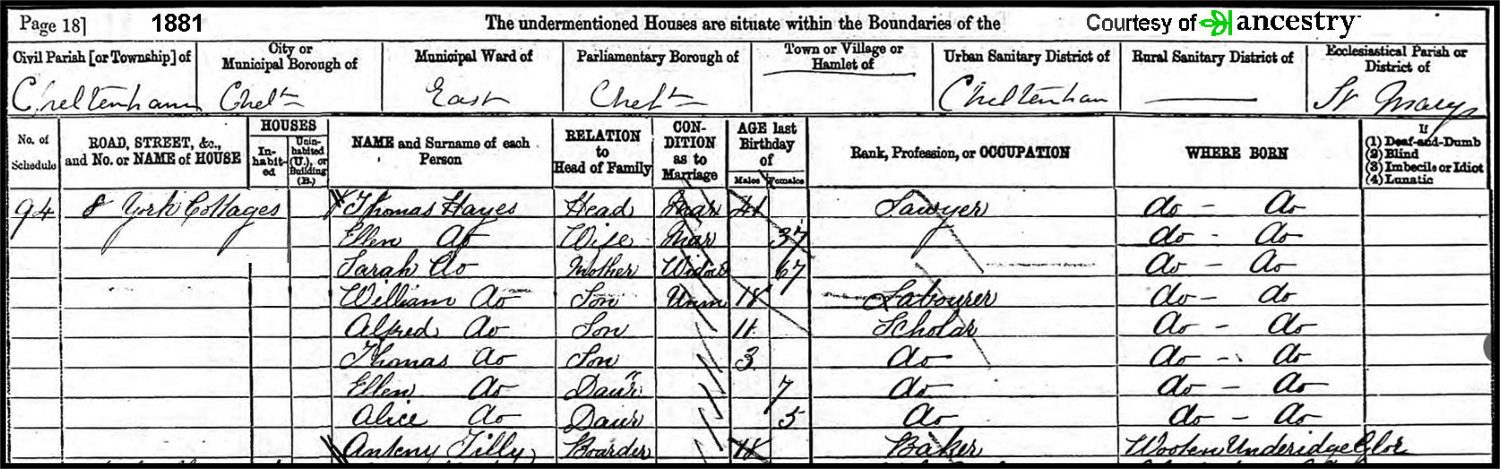 Page 18] 1881 The undermentioned Houses are situate within the Boundaries of the Courtesy of ancestry
Civil Parish [or Township] of City or Municipal Borough of Municipal Ward of Parliamentary Borough of Town or Village or Hamlet of Urban Sanitary District of Rural Sanitary District of Ecclesiastical Parish or District of
Cheltenham Chelt East Chelt Cheltenham St Marys
No. of Schedule ROAD, STREET, &c., and No. or NAME of HOUSE HOUSES In-habit-ed Unin-habited (U.), or Building (B.) NAME and Surname of each Person RELATION to Head of Family CON-DITION as to Marriage AGE last Birthday of Males Females Rank, Profession, or OCCUPATION WHERE BORN If (1) Deaf-and-Dumb (2) Blind (3) Imbecile or Idiot (4) Lunatic
94 8 York Cottages Thomas Hayes Head Mar 41 Sawyer do - do
Ellen do Wife Mar 37 do - do
Sarah do Mother Widow 67 do - do
William do Son Unm 18 Labourer do - do
Alfred do Son 11 Scholar do - do
Thomas do Son 3 do do - do
Ellen do Daur 7 do do - do
Alice do Daur 5 do do - do
Anteny Tilly Boarder 18 Baker Wooten Underidge Glos